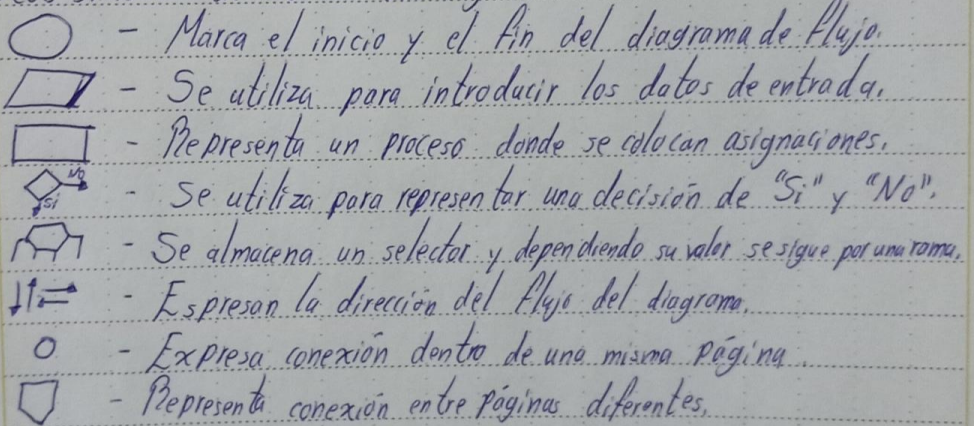 - Marca el inicio y el fin del diagrama de flujo.
- Se utiliza para introducir los datos de entrada.
- Representa un proceso donde se colocan asignaciones.
No
Si
- Se utiliza para representar una decisión de "Si" y "No".
- Se almacena un selector y dependiendo su valor se sigue por una rama.
- Espresan la dirección del flujo del diagrama.
- Expresa conexión dentro de una misma página.
- Representa conexión entre páginas diferentes.